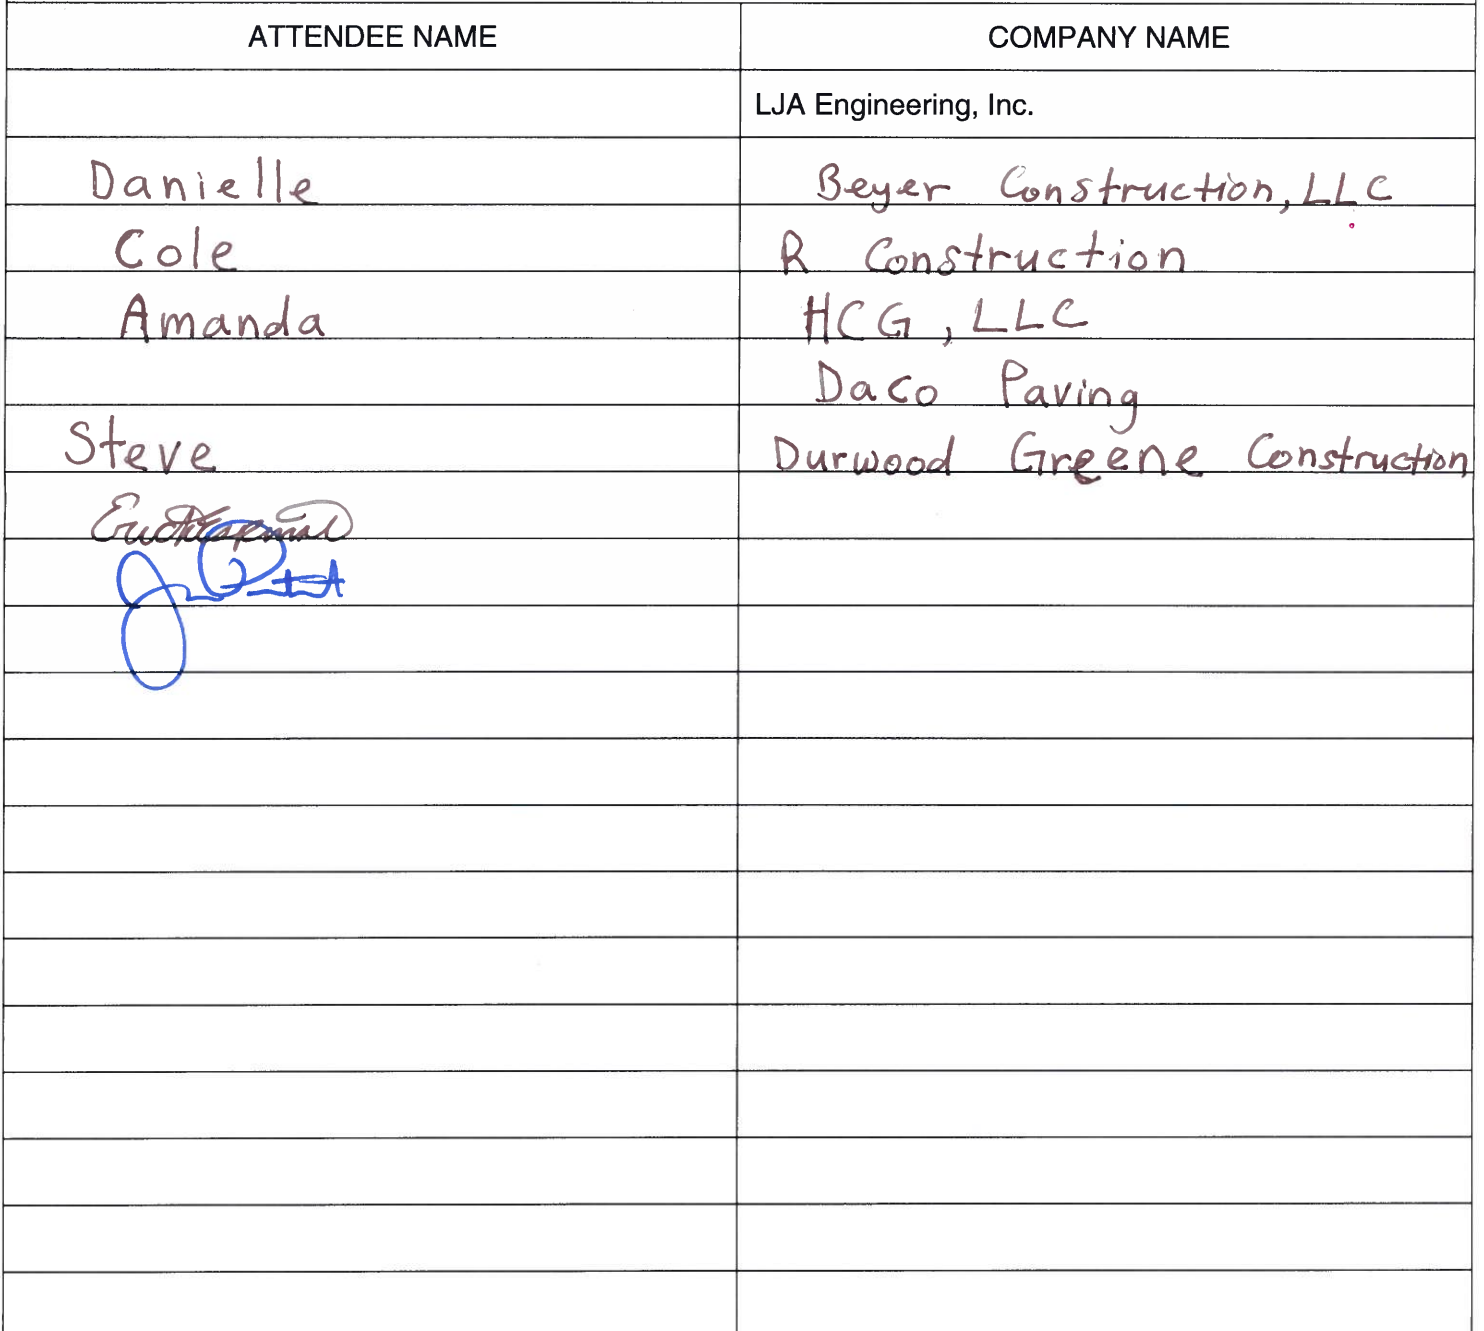 ATTENDEE NAME COMPANY NAME
LJA Engineering, Inc.
Danielle Beyer Construction, LLC
Cole R Construction
Amanda HCG, LLC
Daco Paving
Steve Durwood Greene Construction